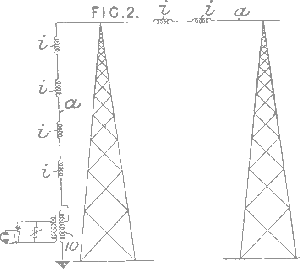 FIG.2.
i i a
i
i
a
i
i
10